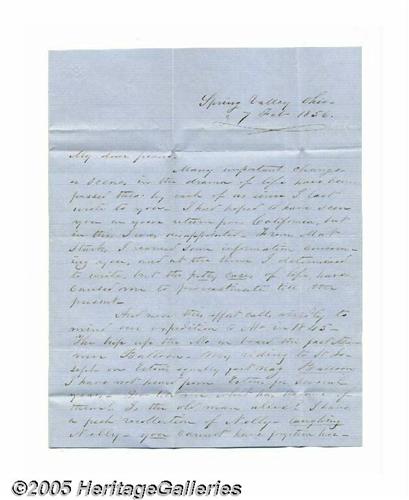 Spring Valley Ohio
27 Feb 1856.
My dear friend.
Many important changes
& scenes in the drama of life have been
passed thro' by each of us since I last
wrote to you. I had hoped to have seen
you on your return from California, but
in this I was disappointed. From Mat
I learned some information concern-
ing you, and at the time I determined
to write, but the petty cares of life, have
caused me to procrastinate till the
present.
And now this effort calls vividly to
mind our expedition to Mo in 1845 -
The trip up the Mo on board the fast
- My riding to St Jo-
seph on equally fast nag
I have not heard from for several
years.
Is the old man alive? I have
a recollection of Nelly - laughing
Nelly - you cannot have forgotten her -
©2005 HeritageGalleries